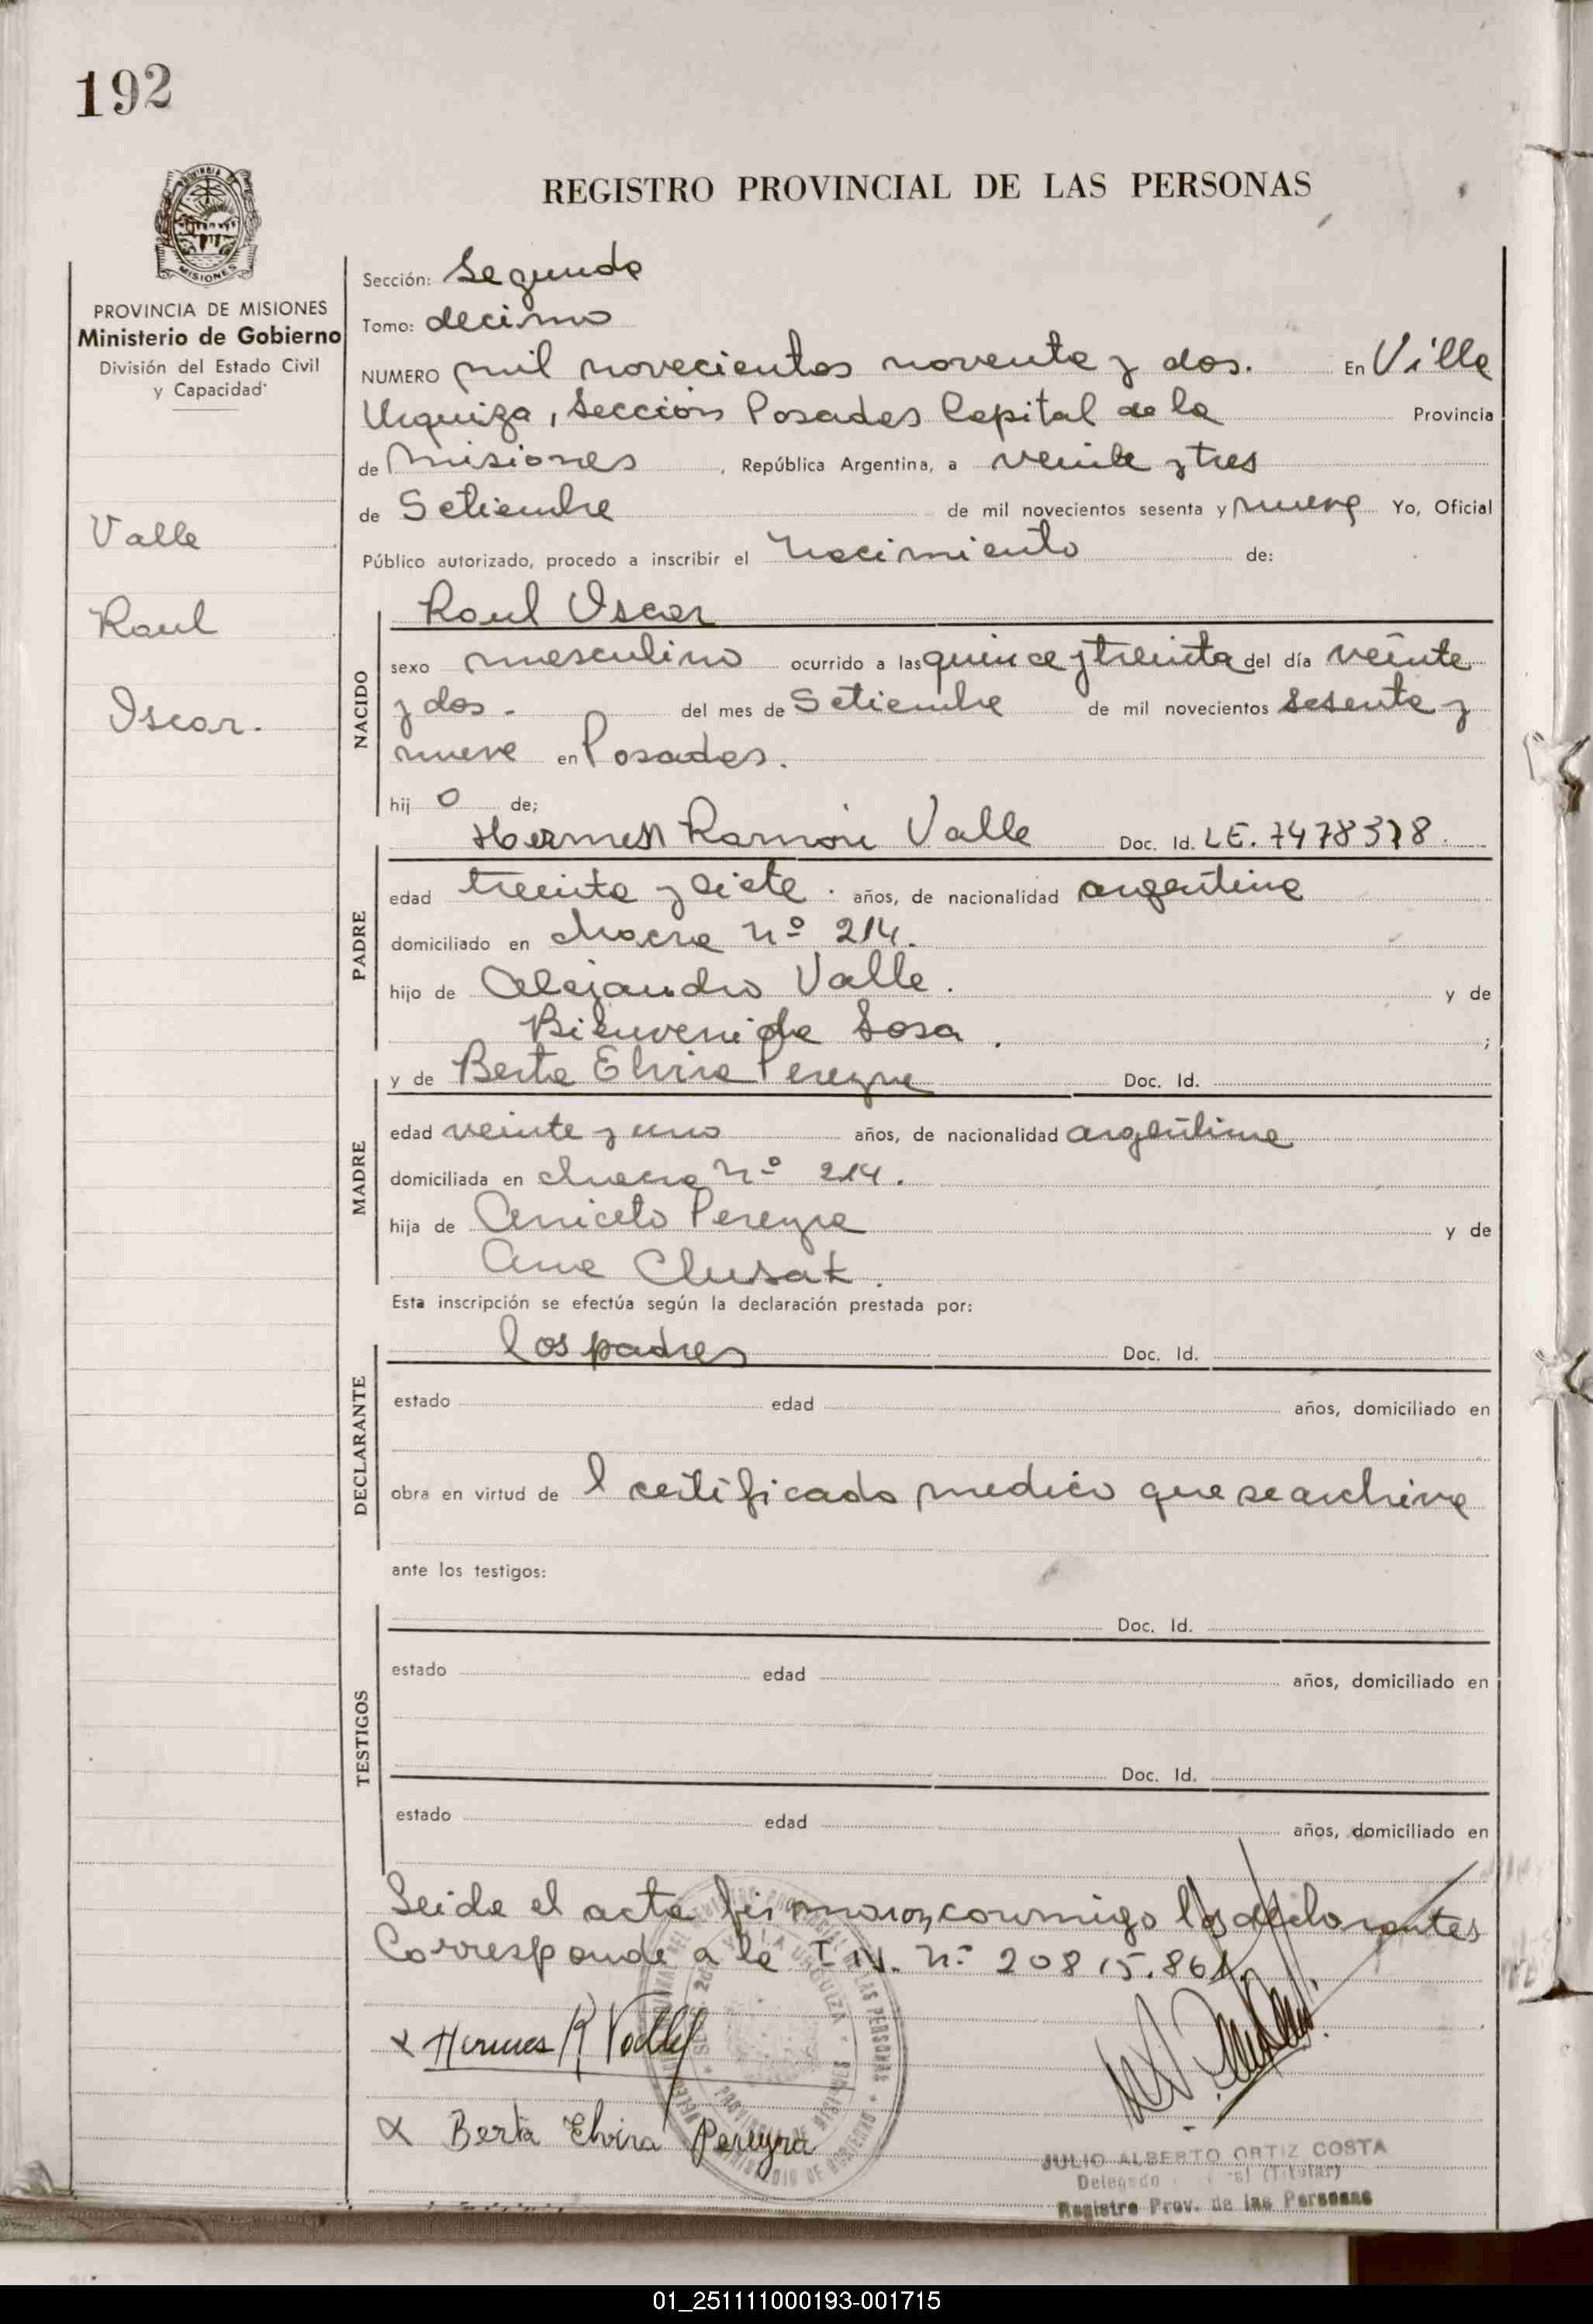 192
PROVINCIA DE MISIONES
Ministerio de Gobierno
División del Estado Civil
y Capacidad
Valle
Raul
Oscar.
REGISTRO PROVINCIAL DE LAS PERSONAS
Sección: Segunda
Tomo: decimo
NUMERO mil novecientos noventa y dos. En Villa
Urquiza, Sección Posadas Capital de la Provincia
de Misiones, República Argentina, a veinte y tres
de Setiembre de mil novecientos sesenta y nueve Yo, Oficial
Público autorizado, procedo a inscribir el Nacimiento de:
NACIDO
Raul Oscar
sexo masculino ocurrido a las quince y treinta del día veinte
y dos. del mes de Setiembre de mil novecientos sesenta y
nueve en Posadas.
hij o de;
PADRE
Hermes Ramón Valle Doc. Id. LE. 7478378.
edad treinta y siete. años, de nacionalidad argentina
domiciliado en chacra nº 214.
hijo de Alejandro Valle. y de
Bienvenida Sosa. ;
MADRE
y de Berta Elvira Pereyra Doc. Id.
edad veinte y uno años, de nacionalidad argentina
domiciliada en chacra nº 214.
hija de Aniceto Pereyra y de
Ana Clusak.
Esta inscripción se efectúa según la declaración prestada por:
DECLARANTE
los padres Doc. Id.
estado edad años, domiciliado en
obra en virtud de l certificado medico que se archiva
ante los testigos:
TESTIGOS
Doc. Id.
estado edad años, domiciliado en
Doc. Id.
estado edad años, domiciliado en
Leida el acta firmaron, conmigo los declarantes
Corresponde a la I.N. nº 20815.861.
x Hermes R Valle
x Berta Elvira Pereyra
JULIO ALBERTO ORTIZ COSTA
Delegado (Titular)
Registro Prov. de las Personas
01_251111000193-001715